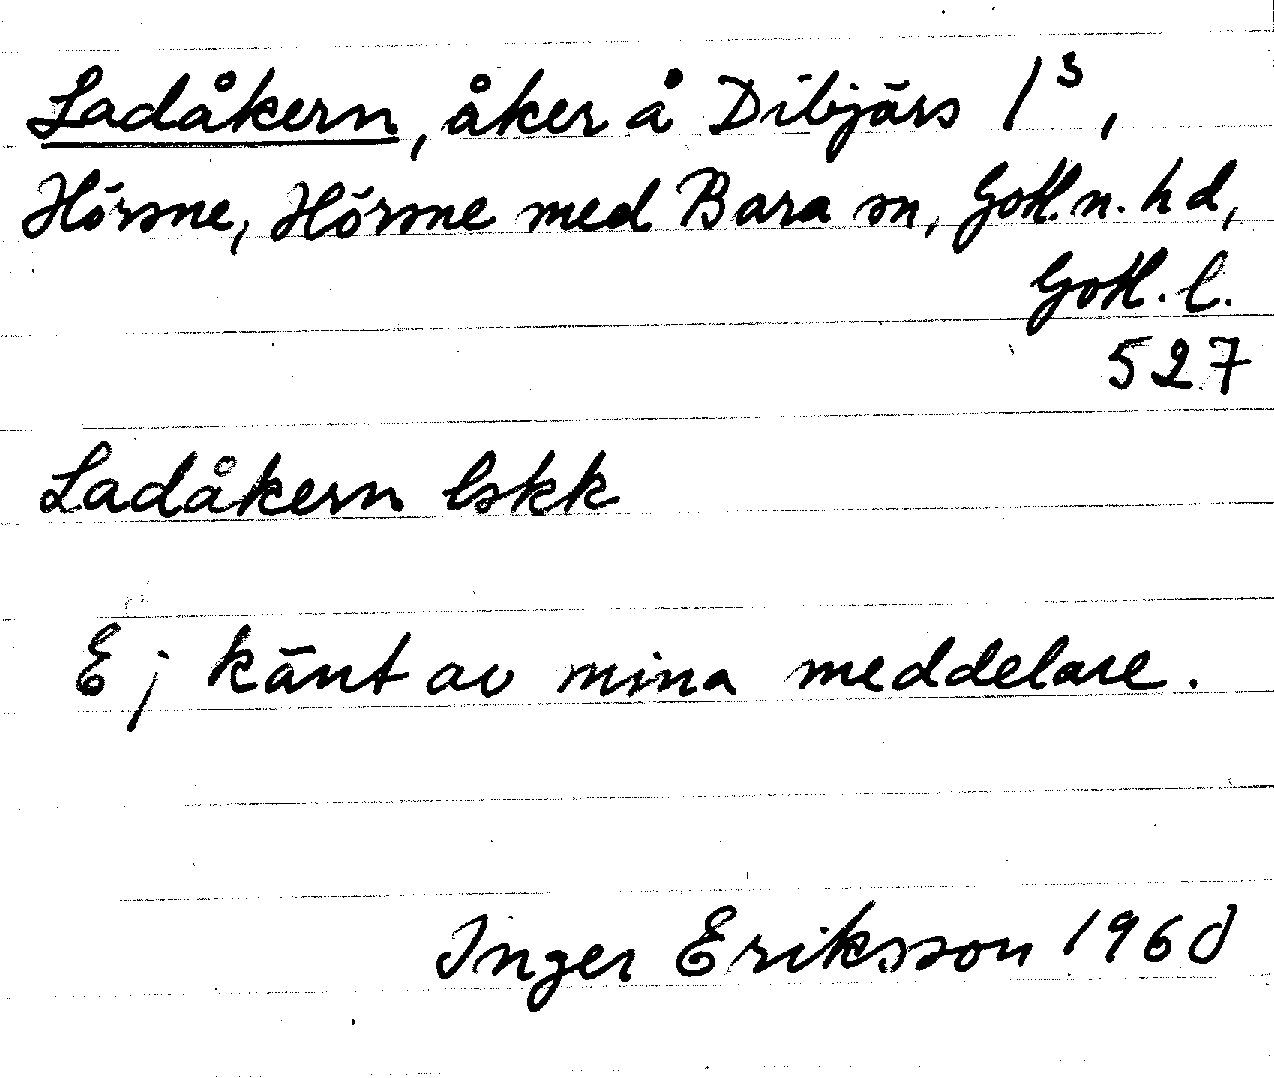 Ladåkern, åker å Dibjärs 1³,
Hörsne, Hörsne med Bara sn, Gotl. n. hd,
Gotl. l.
527
Ladåkern lskk
Ej känt av mina meddelare.
Inger Eriksson 1960